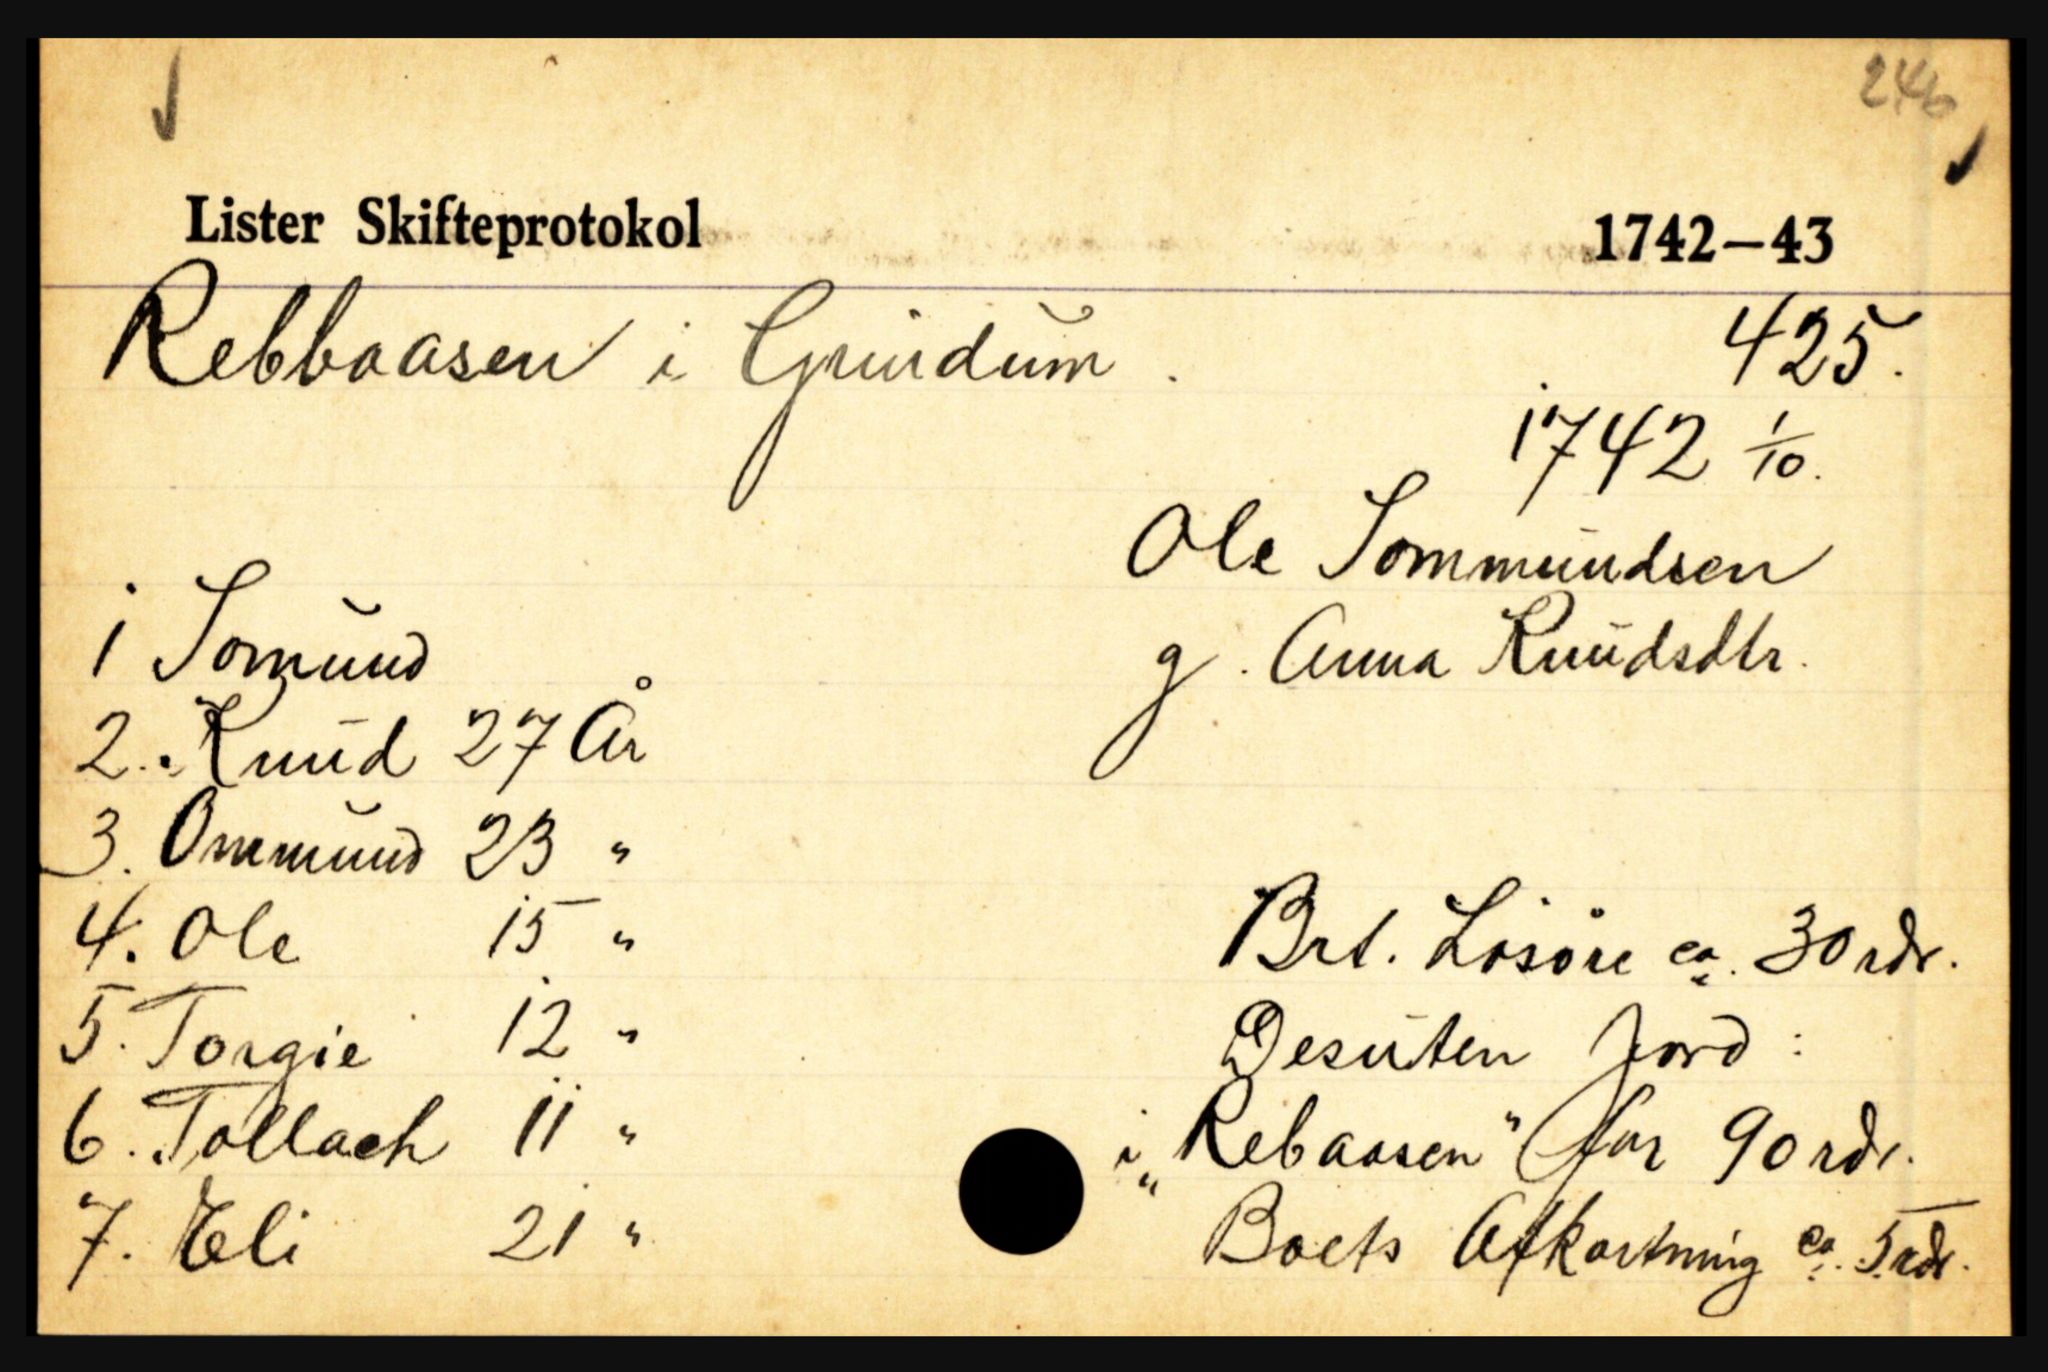 246
Lister Skifteprotokol 1742—43
Rebbaasen i Grindum. 425.
1742 1/10.
Ole Sommundsen
g. Anna Knudsdtr.
1 Somund
2. Knud 27 År
3. Ommund 23 "
4. Ole 15 "
5. Torgie 12 "
6. Tollach 11 "
7. Eli 21 "
Brt. Løsøre ca. 30 rdr.
Desuten Jord:
i „Rebaasen" for 90 rdr.
Boets Afkortning ca. 5 rdr.